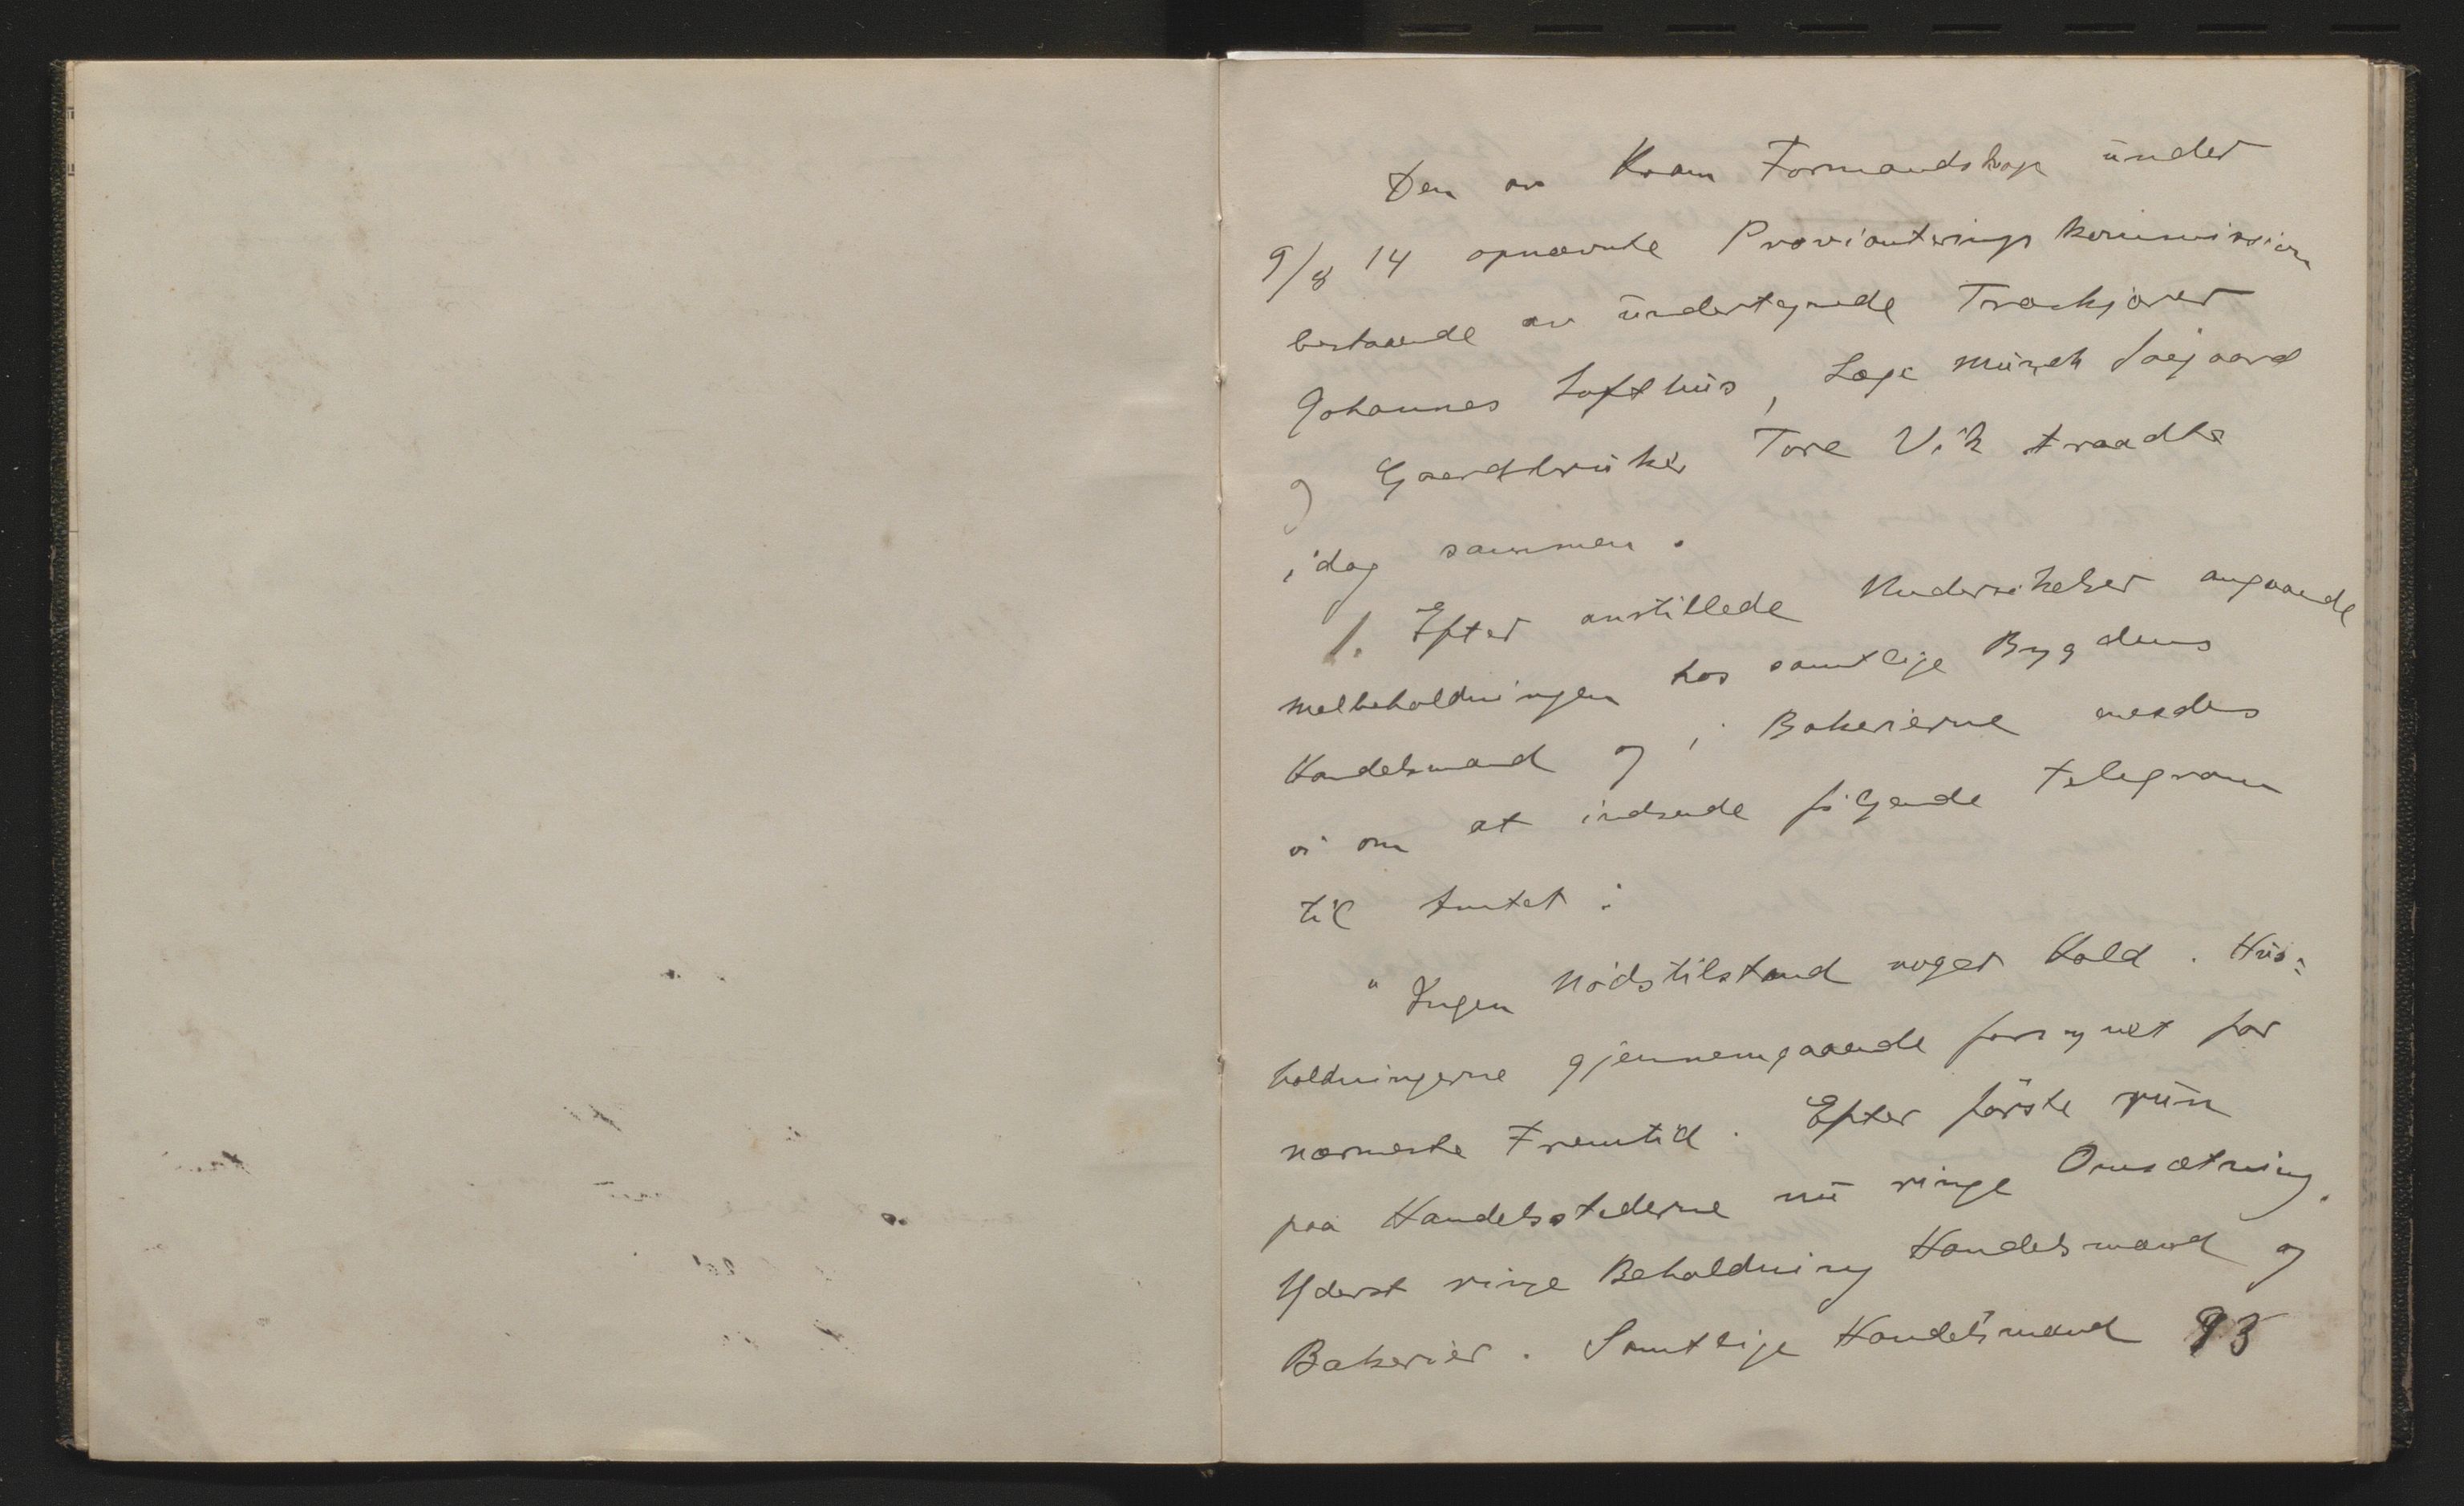 Den av Kvam Formandskap under
9/8 14 opnævnte Provianteringskommission
bestaaende av undertegnede
Johannes Lofthus, Læge Münch Søegaard
og Gaardbruker Tore Vik traadte
idag sammen.
1. Efter anstillede Undersökelser angaaende
melbeholdningen hos samtlige Bygdens
Handelsmænd og i Bakerierne enedes
vi om at indsende fölgende Telegram
til Amtet:
"Ingen Nödstilstand noget Hold. Hus=
holdningerne gjennemgaaende forsynet for
nærmeste Fremtid. Efter förste run
paa Handelsstederne nu ringe Omsætning.
Yderst ringe Beholdning Handelsmænd og
Bakerier. Samtlige Handelsmænd 93